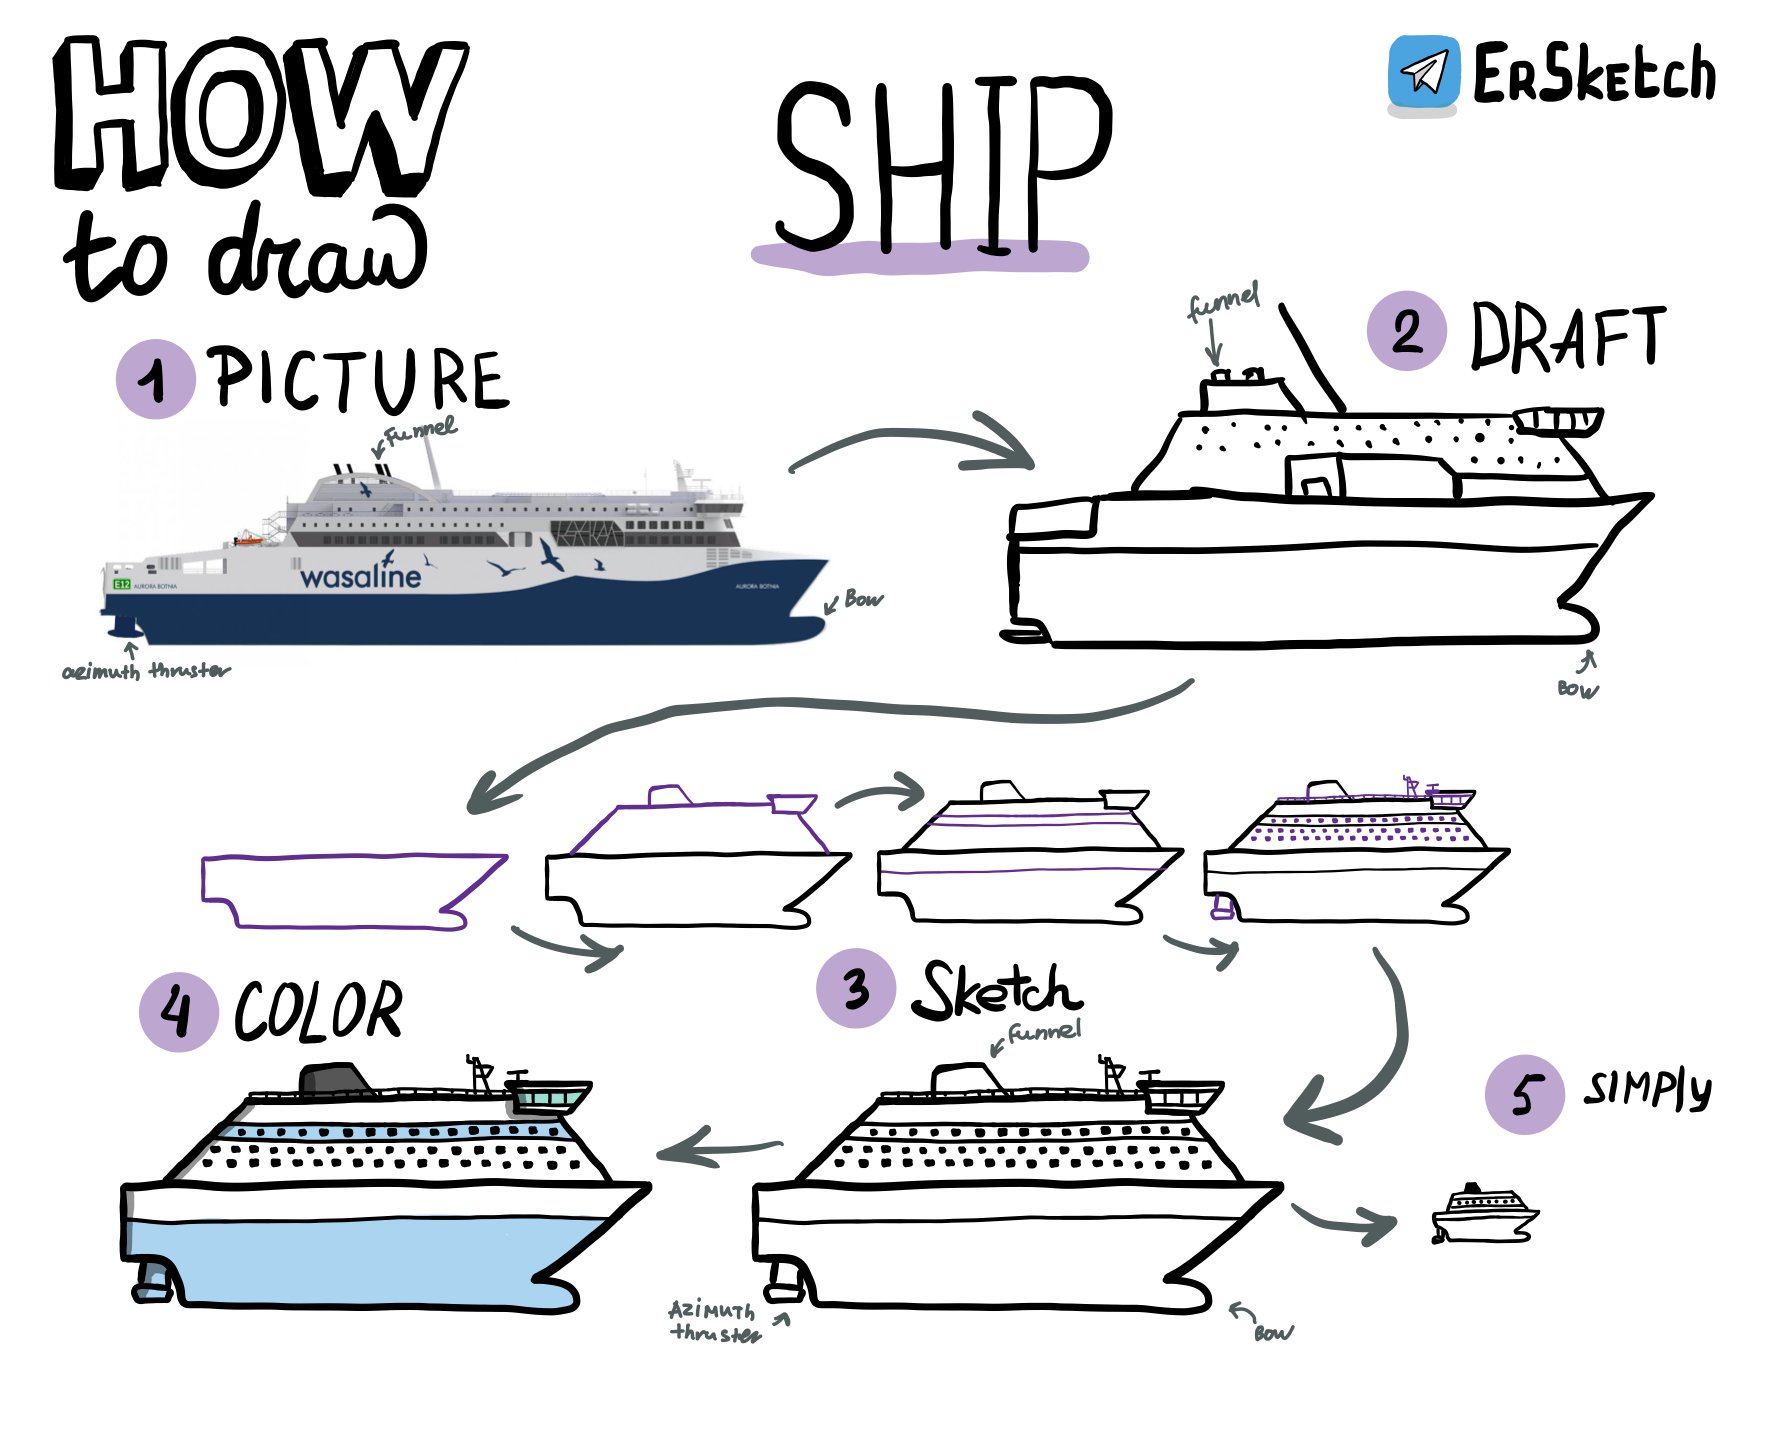 HOW
to draw
SHIP
ErSketch
1 PICTURE
funnel
wasaline
E12 AURORA BOTNIA
AURORA BOTNIA
Bow
azimuth thruster
2 DRAFT
funnel
Bow
3 Sketch
funnel
Azimuth
thruster
Bow
4 COLOR
5 SIMPly